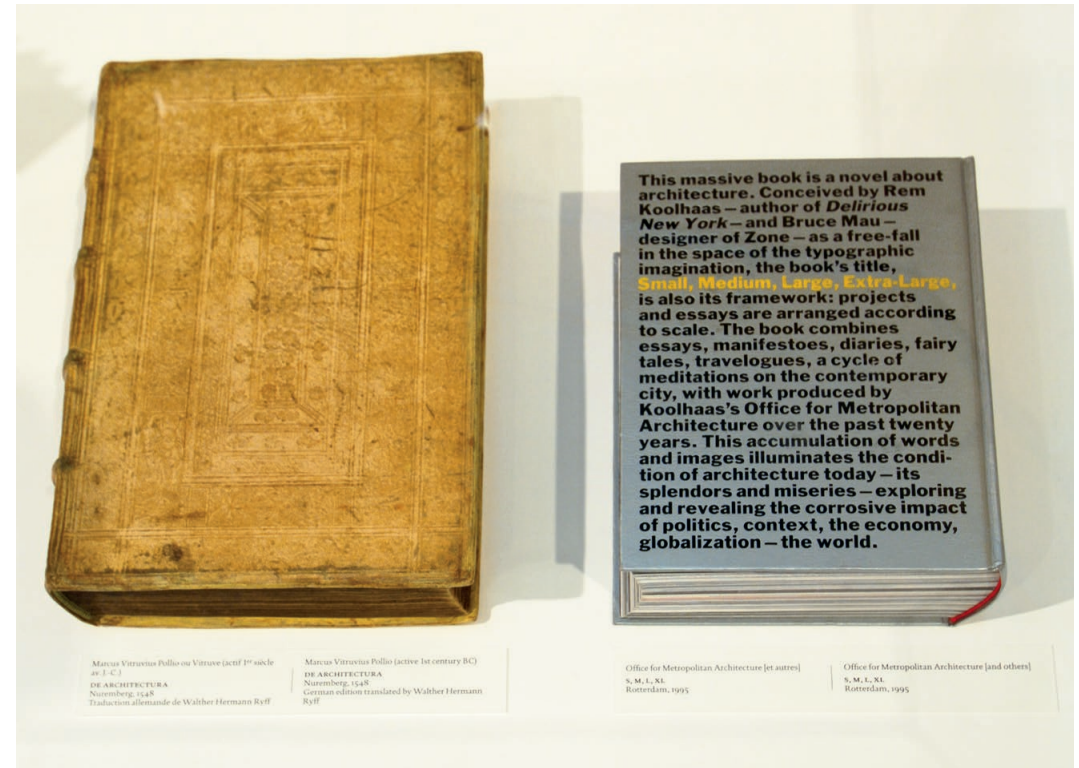 This massive book is a novel about
architecture. Conceived by Rem
Koolhaas – author of Delirious
New York – and Bruce Mau –
designer of Zone – as a free-fall
in the space of the typographic
imagination, the book's title,
Small, Medium, Large, Extra-Large,
is also its framework: projects
and essays are arranged according
to scale. The book combines
essays, manifestoes, diaries, fairy
tales, travelogues, a cycle of
meditations on the contemporary
city, with work produced by
Koolhaas's Office for Metropolitan
Architecture over the past twenty
years. This accumulation of words
and images illuminates the condi-
tion of architecture today – its
splendors and miseries – exploring
and revealing the corrosive impact
of politics, context, the economy,
globalization – the world.
Marcus Vitruvius Pollio ou Vitruve (actif 1er siècle
av. J.-C.)
DE ARCHITECTURA
Nuremberg, 1548
Traduction allemande de Walther Hermann Ryff
Marcus Vitruvius Pollio (active 1st century BC)
DE ARCHITECTURA
Nuremberg, 1548
German edition translated by Walther Hermann
Ryff
Office for Metropolitan Architecture [et autres]
S, M, L, XL
Rotterdam, 1995
Office for Metropolitan Architecture [and others]
S, M, L, XL
Rotterdam, 1995